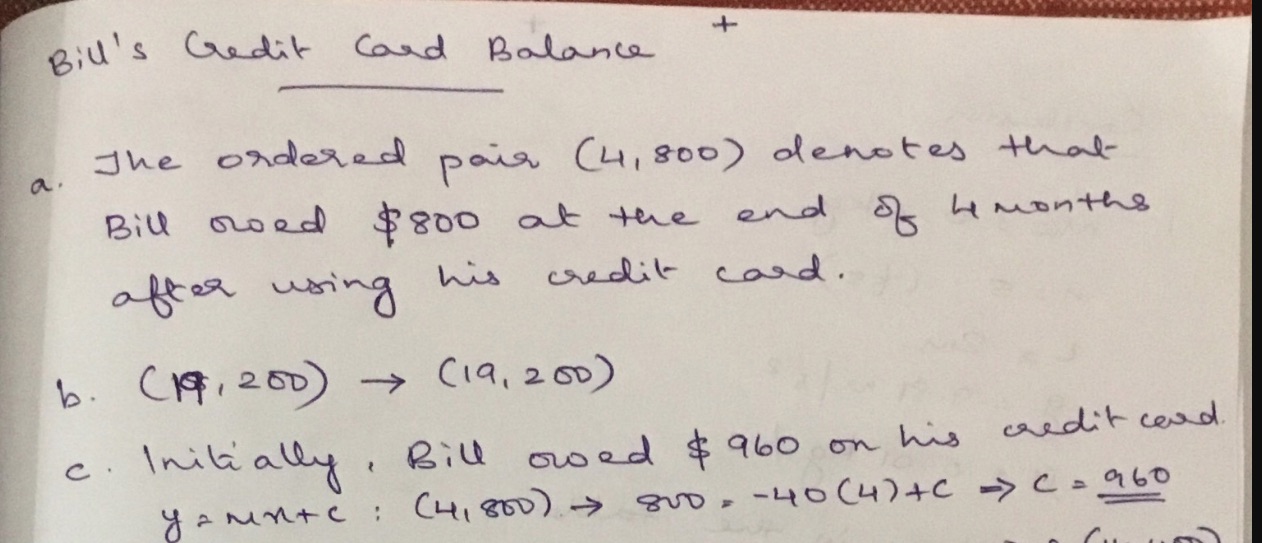 Bill's Credit Card Balance +
a. The ordered pair (4,800) denotes that
Bill owed $800 at the end of 4 months
after using his credit card.
b. (19,200) → (19,200)
c. Initially, Bill owed $960 on his credit card.
y=mx+c : (4,800) → 800 = -40(4)+C ⇒ C = 960